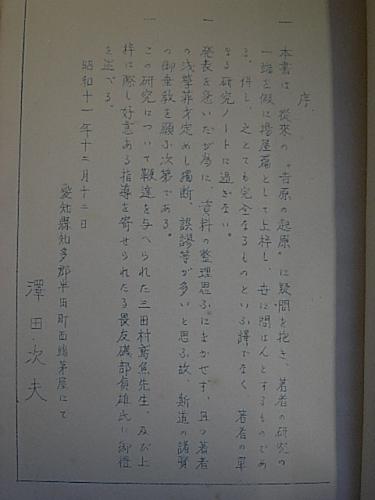 序
一 本書は、從來の“吉原の起原”に疑問を抱き、著者の研究の
一端を假に揚屋篇として上梓し、世に問はんとするものであ
る。併し、之とても完全なるものといふ譯でなく、著者の單
なる研究ノートに過ぎない。
一 発表を急いだが為に、資料の整理思ふにまかせず、且つ著者
の浅學菲才定めし獨断、誤謬等が多いと思ふ故、斯道の諸賢
の御垂教を願ふ次第である。
一 この研究について鞭達を与へられた三田村鳶魚先生、及び上
梓に際し好意ある指導を寄せられたる畏友磯部貞雄氏に御禮
を述べる。
昭和十一年十二月十二日
愛知縣知多郡半田町西端茅屋にて
澤田次夫